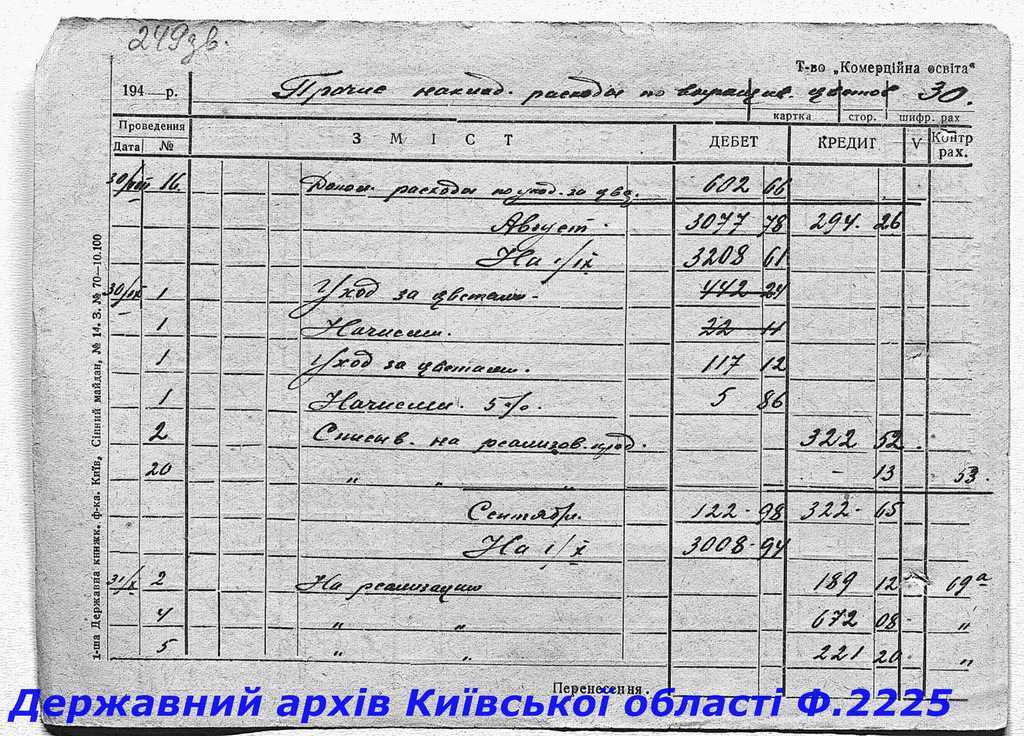 249зв.
Т-во „Комерційна освіта"
194 р. Прочие наклад. расходы по выращив. цветов 30.
картка стор. шифр. рах
Проведення ЗМІСТ ДЕБЕТ КРЕДИТ V Контр рах.
Дата №
30/VIII 16 расходы по уход. за цвет. 602 66
Август. 3077 78 294. 26
На 1/IX 3208 61
30/IX 1 Уход за цветами 442 24
1 Начислен. 22 11
1 Уход за цветами. 117 12
1 Начислен. 5%. 5 86
2 Списыв. на реализов. прод. 322 52
20 „ „ „ - 13 53.
Сентябрь. 122 - 98 322 - 65
На 1/X 3008 - 94
31/X 2 На реализацию 189 12 69а
4 „ „ 672 08 „
5 „ „ 221 20 „
Перенесення.
1-ша Державна книжк. ф-ка. Київ, Сінний майдан, № 14. З. № 70—10.100
Державний архів Київської області Ф.2225